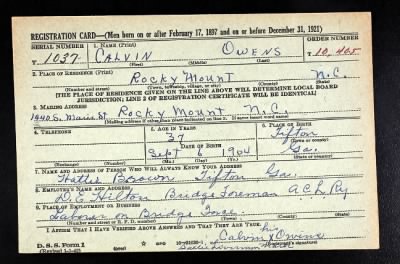 REGISTRATION CARD—(Men born on or after February 17, 1897 and on or before December 31, 1921)
SERIAL NUMBER 1. NAME (Print) ORDER NUMBER
T 1037 CALVIN OWENS T 10,405
(First) (Middle) (Last)
2. PLACE OF RESIDENCE (Print)
Rocky Mount N.C.
(Number and street) (Town, township, village, or city) (County) (State)
[THE PLACE OF RESIDENCE GIVEN ON THE LINE ABOVE WILL DETERMINE LOCAL BOARD
JURISDICTION; LINE 2 OF REGISTRATION CERTIFICATE WILL BE IDENTICAL]
3. MAILING ADDRESS
S. Main St Rocky Mount N.C.
[Mailing address if other than place indicated on line 2. If same insert word same]
4. TELEPHONE 5. AGE IN YEARS 6. PLACE OF BIRTH
37 Tifton
DATE OF BIRTH (Town or county)
Sept 6 1904 Ga.
(Exchange) (Number) (Mo.) (Day) (Yr.) (State or country)
7. NAME AND ADDRESS OF PERSON WHO WILL ALWAYS KNOW YOUR ADDRESS
Hattie Brown Tifton Ga.
8. EMPLOYER'S NAME AND ADDRESS
D.E. Hilton Bridge Foreman A.C.L. Ry
9. PLACE OF EMPLOYMENT OR BUSINESS
Laborer on Bridge Force.
(Number and street or R. F. D. number) (Town) (County) (State)
I AFFIRM THAT I HAVE VERIFIED ABOVE ANSWERS AND THAT THEY ARE TRUE.
D. S. S. Form 1 GPO his
(Revised) (over) Calvin X Owens
mark (Registrant's signature)